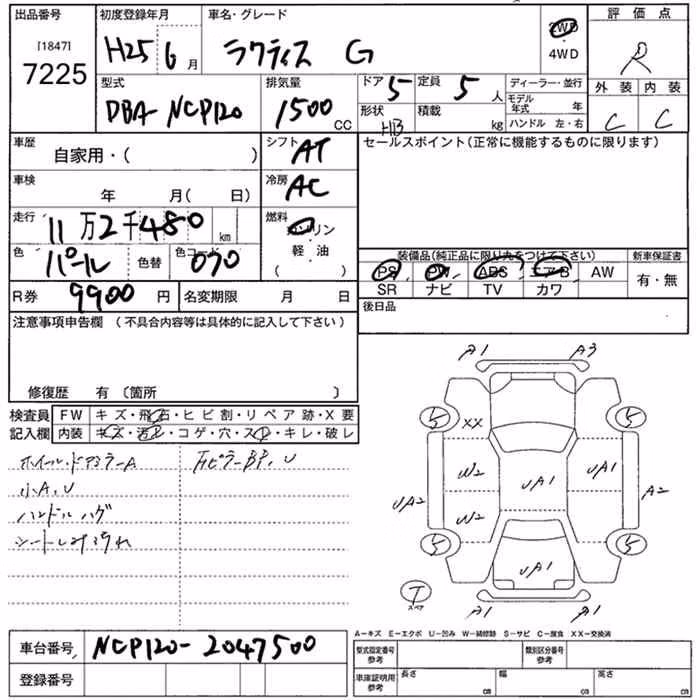 出品番号 初度登録年月 車名・グレード 評価点
[1847] 7225 H25 6月 ラクティス G 2WD・4WD R
型式 排気量 ドア 5 定員 5人 ディーラー・並行 外装 内装
DBA-NCP120 1500CC 形状 HB 積載 kg モデル年式 年 C C
ハンドル 左・右
車歴 自家用・( ) シフト AT セールスポイント(正常に機能するものに限ります)
車検 年 月( 日) 冷房 AC
走行 11万2千480 km 燃料 ガソリン・軽油 ( )
色 パール 色替 色コード 070 装備品(純正品に限り丸をつけて下さい) 新車保証書
PS PW ABS エアB AW 有・無
R券 9900円 名変期限 月 日 SR ナビ TV カワ
注意事項申告欄 (不具合内容等は具体的に記入して下さい) 後日品
修復歴 有 〔箇所 〕
検査員 FW キズ・飛石・ヒビ割・リペア跡・X要
記入欄 内装 キズ・汚レ・コゲ・穴・スレ・キレ・破レ
A1 A3
5 XX 5
ホイール・ドアミラーA RピラーBP、U
小A、U
W2 UA1 UA1
UA2 A2
ハンドルハゲ W2
シートしみ汚れ 5 5
UA1
T スペア
A1 A1
A-キズ E-エクボ U-凹み W-補修跡 S-サビ C-腐食 XX-交換済
車台番号 NCP120-2047500 型式指定番号 参考 類別区分番号 参考
登録番号 車庫証明用 参考 長さ cm 幅 cm 高さ cm